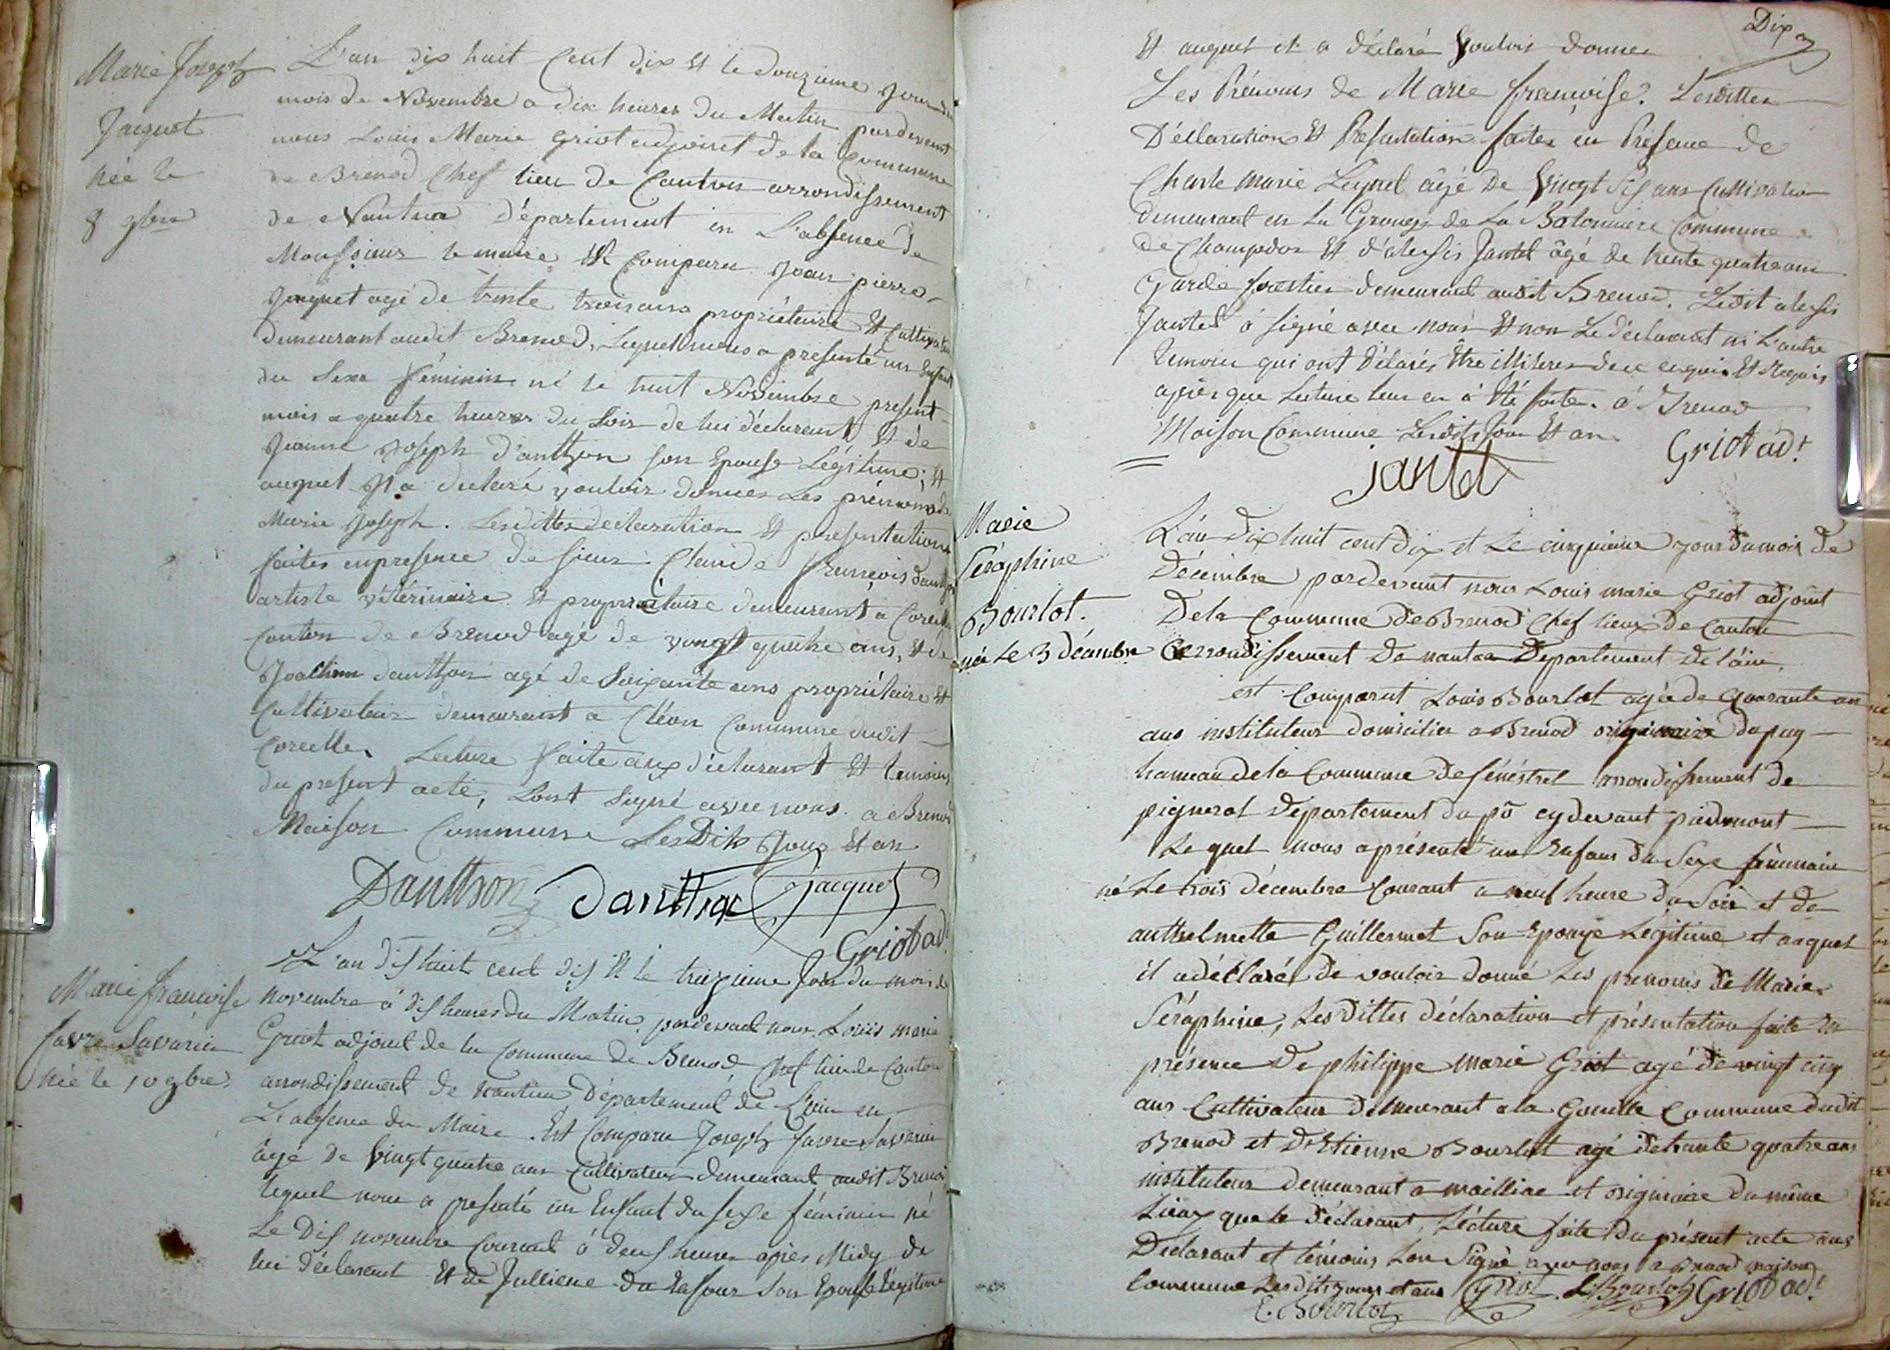 Marie Joseph
Jacquet
née le
8 9bre
L'an dix huit Cent dix Et le douzieme jour du
mois de Novembre a dix heures du Matin pardevant
nous Louis Marie Griot adjoint de la Commune
de Brenod Chef lieu de Canton arrondissement
de Nantua Département en L'absence de
Monsieur le maire Est Comparu Jean pierre
Jacquet agé de trente trois ans propriétaire Et Cultivateur
demeurant audit Brenod, Lequel nous a presenté un Enfant
du Sexe féminin né le huit Novembre present
mois a quatre heures du Soir de lui déclarant Et de
Jeanne Joseph d'anthon son Epouse Légitime; Et
auquel Il a declaré vouloir donner Les prénoms de
Marie Joseph. Lesdittes declaration Et presentation
faites en presence de Sieur Claude François danthon
artiste vétérinaire Et propriétaire demeurant a Corcelle
Canton de Brenod agé de vingt quatre ans, Et de
Joachim danthon agé de Soixante ans propriétaire Et
Cultivateur demeurant a Cléon Commune dudit
Corcelle. Lecture faite aux déclarant Et temoins
du present acte, Lont Signé avec nous. a Brenod
Maison Commune Les Dits Jour Et an
Danthon Danthon Jacquet
Griot adt
Marie francoise
favre Savarin
née le 10 9bre
L'an dis huit cent dis Et le treizieme Jour du mois de
novembre à dis heures du Matin pardevant nous Louis marie
Griot adjoint de la Commune de Brenod Chef lieu de Canton
arrondissement de nantua Département de L'ain en
L'absence du Maire. Est Comparu Joseph favre Savarin
âgé de Vingt quatre ans Cultivateur demeurant audit Brenod
lequel nous a presenté un Enfant du sexe féminin né
Le Dis novembre Courant à deus heures après Midy de
lui Déclarant Et de Julliene Du Lafour Son Epouse Légitime
Dix
Et auquel il a déclaré Vouloir donner
Les Prénoms de Marie francoise. Lesdittes
Déclaration Et Présentation faites en Présence de
Charle Marie Leynel âgé De Vingt sis ans Cultivateur
demeurant en La Grange de La Batonniere Commune
de Champdor Et d'alexis Jantet âgé de trente quatre ans
Garde forestier demeurant audit Brenod. Ledit alexis
Jantet à signé avec nous Et non Le déclarant ni L'autre
temoin qui ont Déclarés Etre illiteres de ce enquis Et Requis
après que Lecture leur en à Eté faite. à Brenod
Maison Commune Lesdits Jour Et an.
Jantet
Griot adt
Marie
Séraphine
Bourlot.
née le 3 décembre
L'an Dix huit cent dix et Le cinquieme jour du mois de
Décembre pardevant nous Louis marie Griot adjoint
De la Commune de Brenod Chef lieux de Canton
arrondissement De nantua Département de l'ain,
est Comparut Louis Bourlot agé de quarante un
ans instituteur domicilié a Brenod originaire du puy
hameau de la Commune de fénéstrel arrondissement de
pignerol Département du pô cydevant piedmont
Le quel nous a présenté un Enfans du Sexe féminain
né Le trois décembre Courant a neuf heure du Soir et de
anthelmette Guillermet Son Eponge Légitime et auquel
il a déclaré De vouloir donné Les prenoms de Marie
Séraphine, Les Dittes déclaration et présentation faite en
présence De philippe marie Griot agé de vingt cinq
ans Cultivateur Démeurant a la Gouille Commune dudit
Brenod et D'Etienne Bourlot agé de trante quatre ans
instituteur demeurant a mailliae et originaire du même
Lieux que le Déclarant, Lécture faite Du présent acte aux
Déclarant et témoins Lon Signé avec nous a Brenod maison
Commune Les dits jours et ans Griot L. Bourlot Griot adt
E. Bourlot